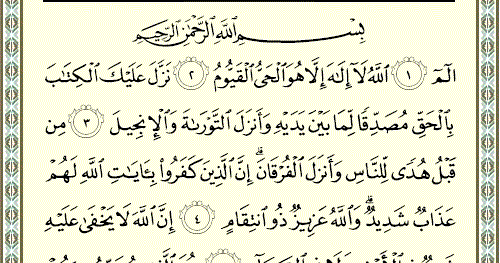 بِسْمِ ٱللَّهِ ٱلرَّحْمَٰنِ ٱلرَّحِيمِ
الٓمٓ ١ ٱللَّهُ لَآ إِلَٰهَ إِلَّا هُوَ ٱلْحَىُّ ٱلْقَيُّومُ ٢ نَزَّلَ عَلَيْكَ ٱلْكِتَٰبَ
بِٱلْحَقِّ مُصَدِّقًا لِّمَا بَيْنَ يَدَيْهِ وَأَنزَلَ ٱلتَّوْرَىٰةَ وَٱلْإِنجِيلَ ٣ مِن
قَبْلُ هُدًى لِّلنَّاسِ وَأَنزَلَ ٱلْفُرْقَانَ ۗ إِنَّ ٱلَّذِينَ كَفَرُوا۟ بِـَٔايَٰتِ ٱللَّهِ لَهُمْ
عَذَابٌ شَدِيدٌ ۗ وَٱللَّهُ عَزِيزٌ ذُو ٱنتِقَامٍ ٤ إِنَّ ٱللَّهَ لَا يَخْفَىٰ عَلَيْهِ